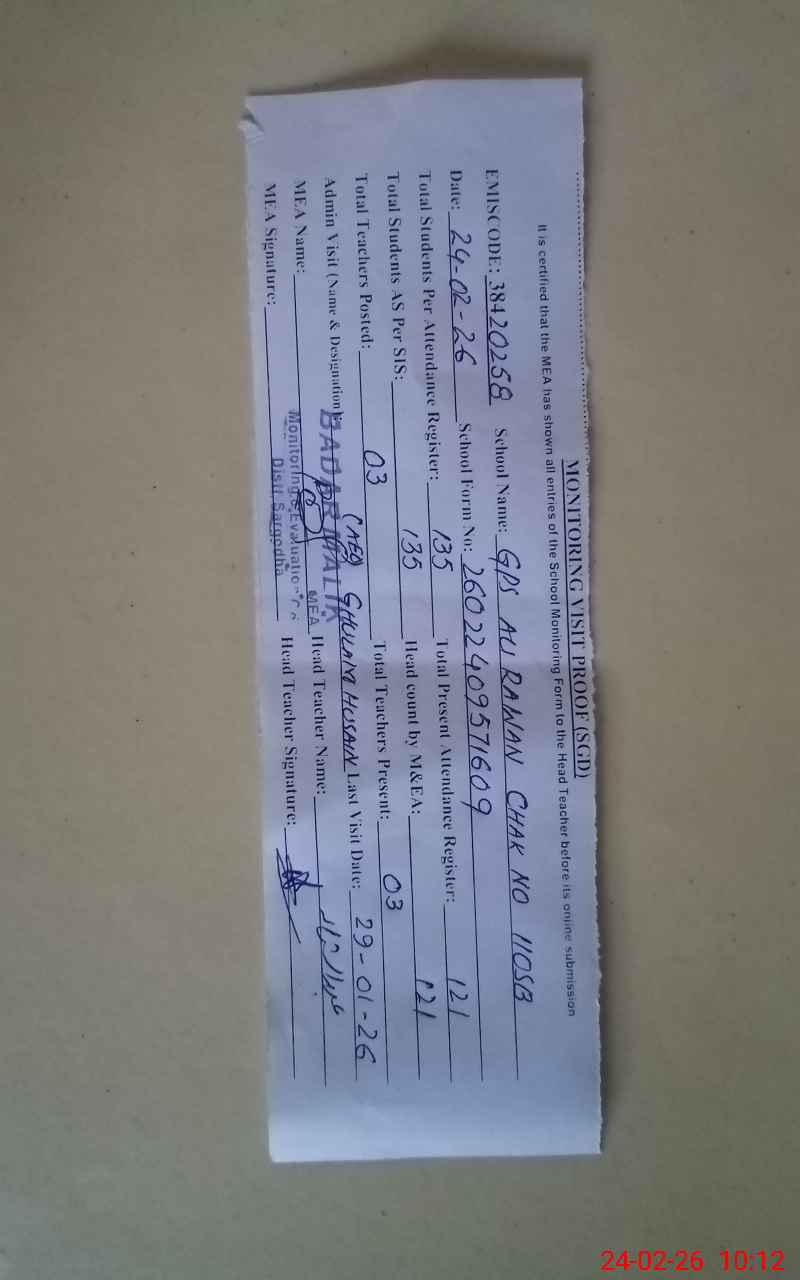 MONITORING VISIT PROOF (SGD)
It is certified that the MEA has shown all entries of the School Monitoring Form to the Head Teacher before its online submission
EMISCODE: 38420258 School Name: GPS ALI RAWAN CHAK NO 110SB
Date: 24-02-26 School Form No: 26022409571609
Total Students Per Attendance Register: 135 Total Present Attendance Register: 121
Total Students AS Per SIS: 135 Head count by M&EA: 121
Total Teachers Posted: 03 Total Teachers Present: 03
Admin Visit (Name & Designation): (AEO) GHULAM HUSAIN Last Visit Date: 29-01-26
MEA Name: BADAR MALIK Head Teacher Name:
Monitoring & Evaluation MEA
MEA Signature: Distt. Sargodha Head Teacher Signature:
24-02-26 10:12